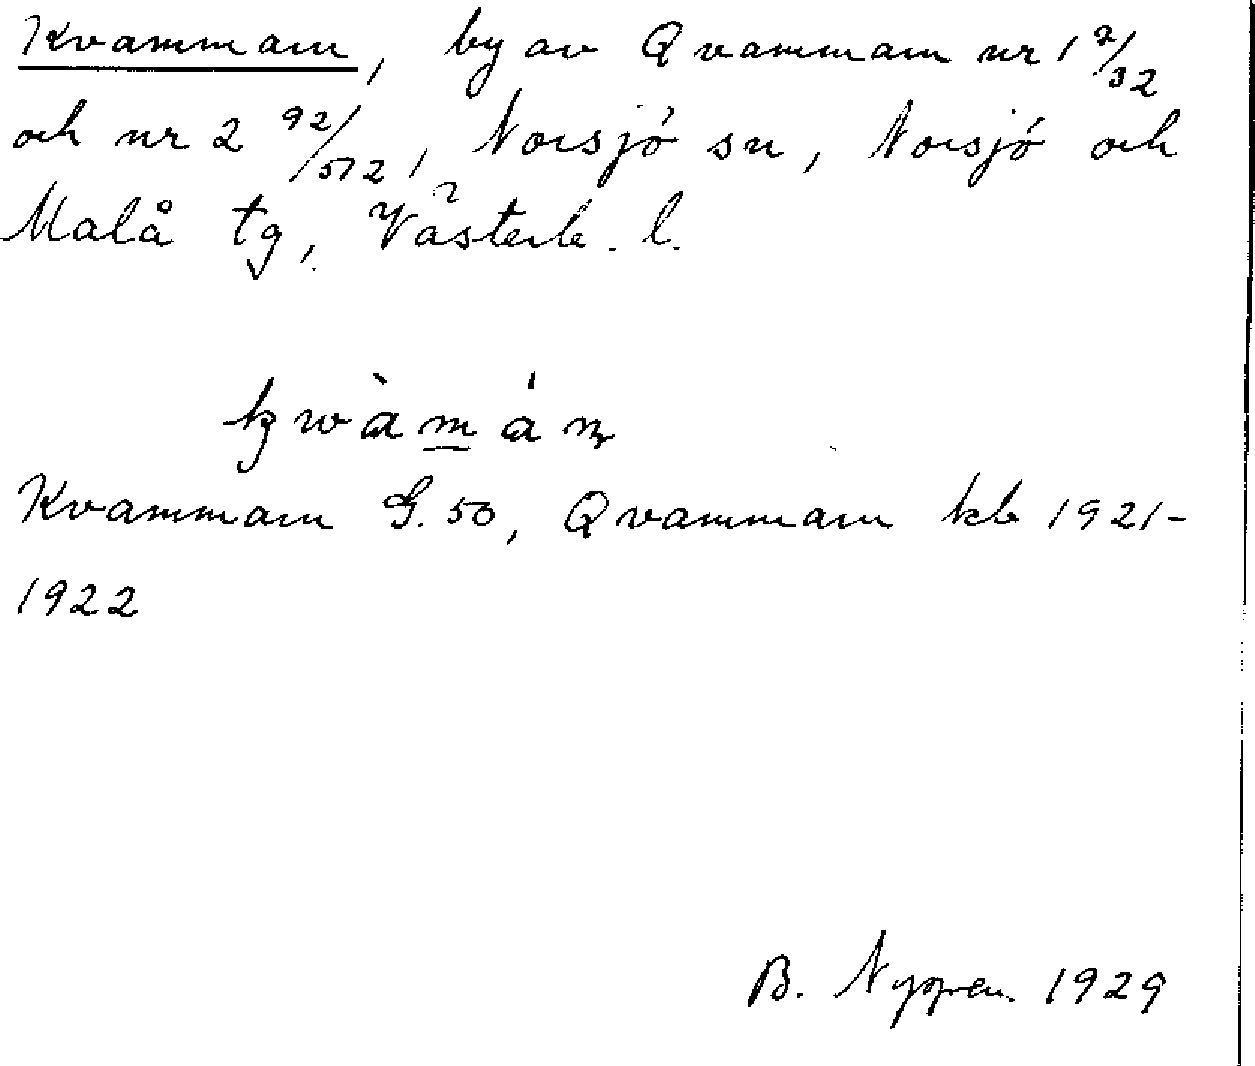 Kvammarn, by av Qvammarn nr 1 2/32
och nr 2 92/512, Norsjö sn, Norsjö och
Malå tg, Västerb. l.
kwàmán
Kvammarn G. 50, Qvammarn kb 1921-
1922
B. 1929